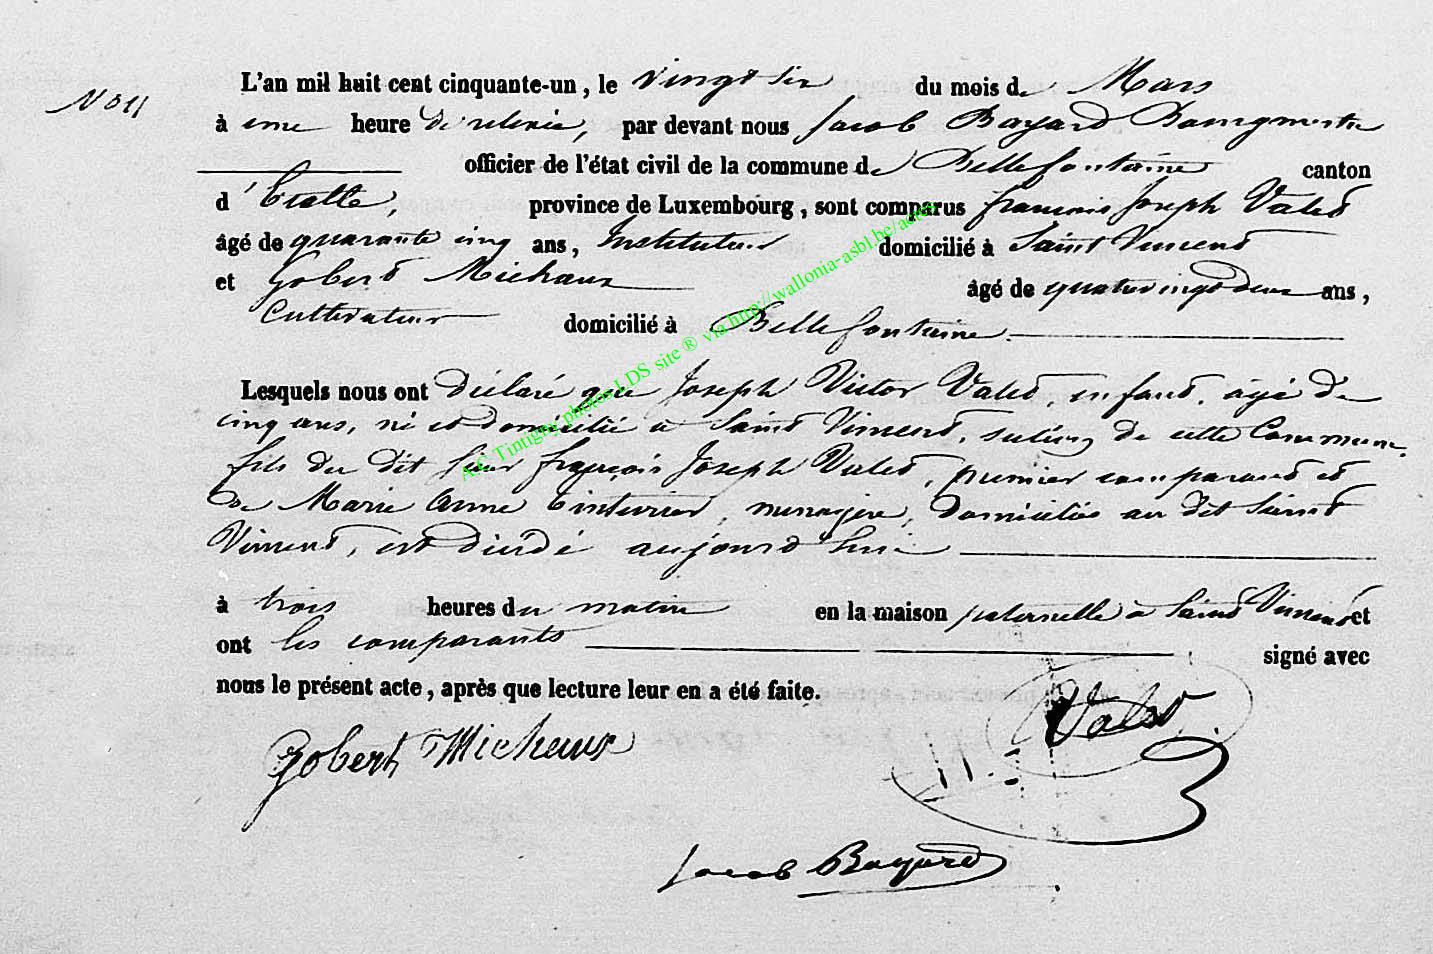 N° 11
L'an mil huit cent cinquante-un, le vingt six du mois de Mars
à une heure de relevée, par devant nous Jacob Bayard Bourgmestre
officier de l'état civil de la commune de Bellefontaine canton
d'Etalle, province de Luxembourg, sont comparus françois Joseph Valet
âgé de quarante cinq ans, Instituteur domicilié à Saint Vincent
et Gobert Michaux âgé de quatrevingt deux ans,
Cultivateur domicilié à Bellefontaine
Lesquels nous ont déclaré que Joseph Victor Valet, enfant, âgé de
cinq ans, né et domicilié à Saint Vincent, section de cette Commune,
fils du dit sieur françois Joseph Valet, premier comparant et
de Marie Anne Tinturier, menagère, domiciliés au dit Saint
Vincent, est décédé aujourd'hui
à trois heures du matin en la maison paternelle à Saint Vincent et
ont les comparants signé avec
nous le présent acte, après que lecture leur en a été faite.
Gobert Micheaux
Valet
Jacob Bayard
A.C Tintigny photos LDS site ® via http://wallonia-asbl.be/actes